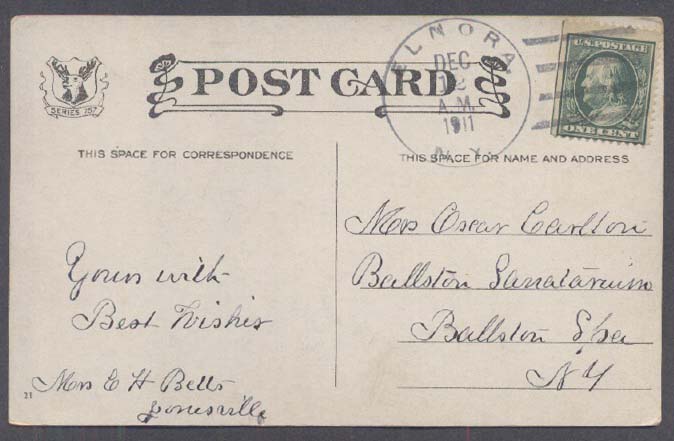 SERIES 257
POST CARD
ELNORA,
DEC
12
A.M.
1911
N.Y.
U.S. POSTAGE
ONE CENT
THIS SPACE FOR CORRESPONDENCE
THIS SPACE FOR NAME AND ADDRESS
Yours with
Best Wishes
Mrs E H Betts
Jonesville
Mrs Oscar Carlton
Ballston Sanatarium
Ballston Spa
NY
21